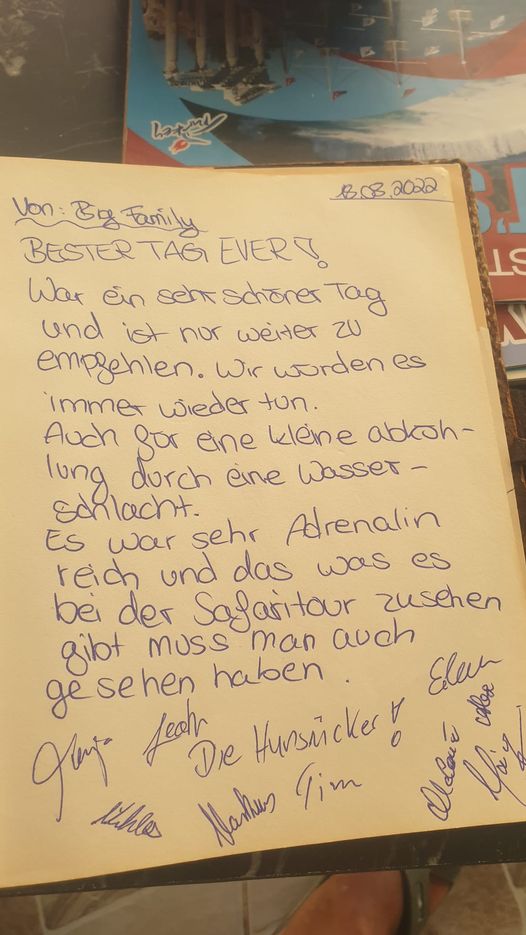 Turkey
13.08.2022
Von: Big Family
BESTER TAG EVER!
War ein sehr schöner Tag
und ist nur weiter zu
empfehlen. Wir würden es
immer wieder tun.
Auch für eine kleine abküh-
lung durch eine Wasser-
schlacht.
Es war sehr Adrenalin
reich und das was es
bei der Safaritour zusehen
gibt muss man auch
gesehen haben.
Leah
Die Hunsrücker!
Markus Tim